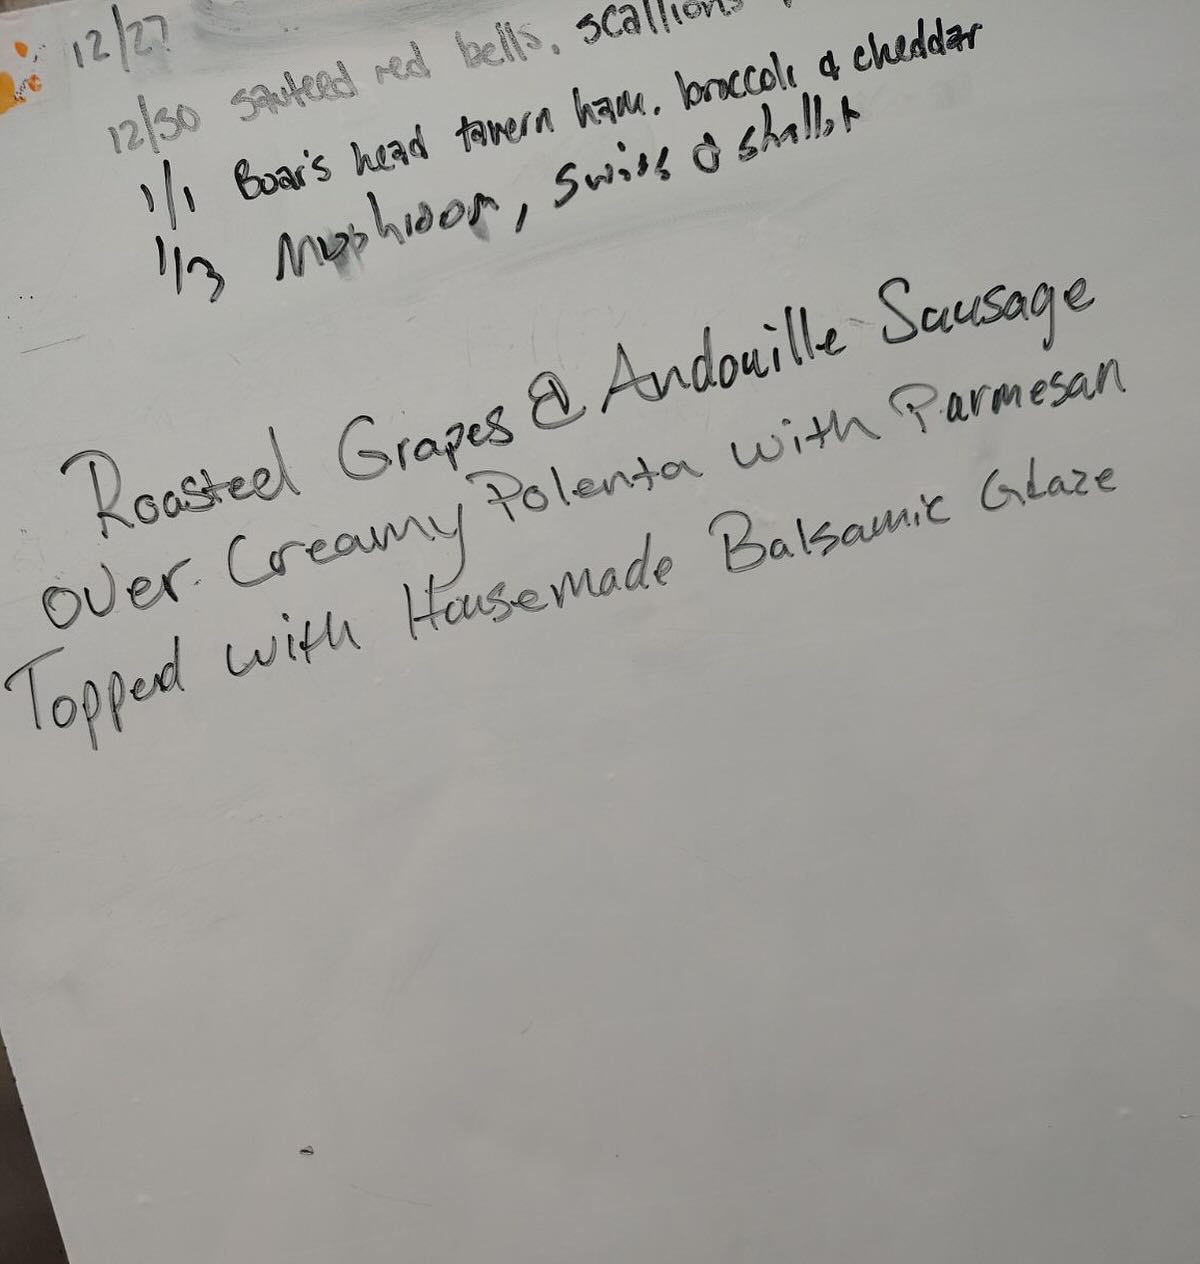 12/27
12/30 sauteed red bells, scallions
1/1 Boar's head tavern ham, broccoli & cheddar
1/3 Mushroom, Swiss & shallot
Roasted Grapes & Andouille Sausage
over Creamy Polenta with Parmesan
Topped with Housemade Balsamic Glaze